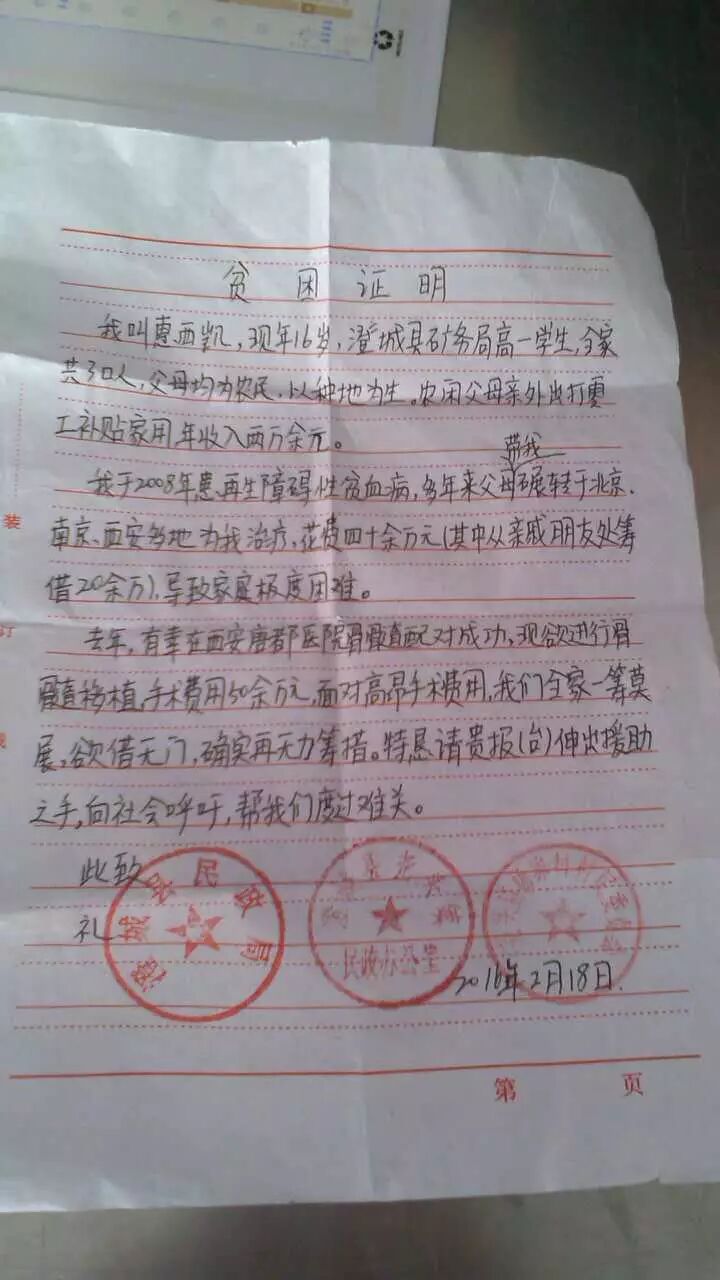 贫困证明
我叫惠西凯，现年16岁，澄城县矿务局高一学生，全家
共3口人，父母均为农民，以种地为生。农闲父母亲外出打
工补贴家用，年收入两万余元。
带我
我于2008年患再生障碍性贫血病，多年来父母辗转于北京、
南京、西安多地为我治疗，花费四十余万元（其中从亲戚朋友处筹
借20余万），导致家庭极度困难。
去年，有幸在西安唐都医院骨髓配对成功，现欲进行骨
髓移植，手术费用50余万元，面对高昂手术费用，我们全家一筹莫
展，欲借无门，确实再无力筹措。特恳请贵报（台）伸出援助
之手，向社会呼吁，帮我们度过难关。
此致
礼
澄城县民政局
民政办公室
2016年2月18日.
装
订
线
第 页